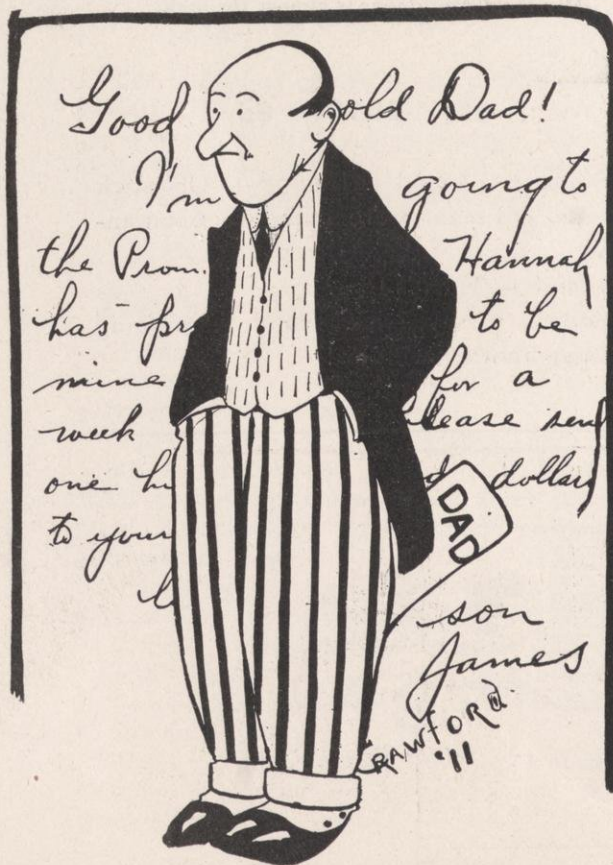 Good old Dad!
I'm going to
the Prom. Hannah
has pr to be
mine for a
week lease send
one h d dollars
to your
son
James
DAD
RAWFORD
'11